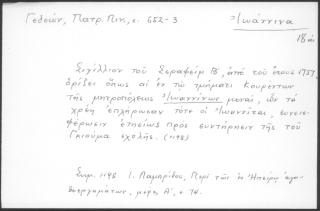 Γεδεών, Πατρ. Πιν., σ. 652-3
Ἰωάννινα
18 αἰ.
Σιγίλλιον τοῦ Σεραφείμ Β', ἀπό τοῦ ἔτους 1757,
ὁρίζει ὅπως αἱ ἐν τῷ τμήματι Κουρέντων
τῆς μητροπόλεως Ἰωαννίνων μοναί, ὧν τά
χρέη ἐπλήρωσαν τότε οἱ Ἰωαννῖται, συνεισ-
φέρωσιν ἐτησίως πρός συντήρησιν τῆς τοῦ
Γκιούμα σχολῆς. (1198)
Σημ. 1198 Ι. Λαμπρίδου, Περί τῶν ἐν Ἠπείρῳ ἀγα-
θοεργημάτων, μέρος Α', σ. 74.